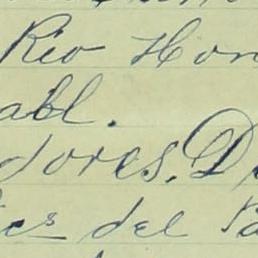 Rio Hon
abl.
dores. D
es del Pa